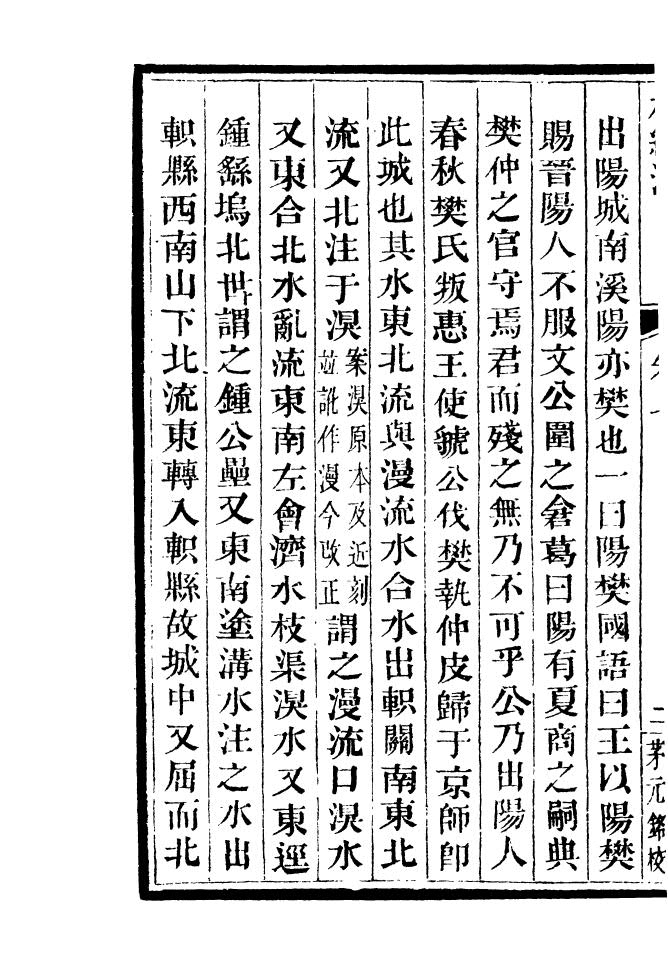 出陽城南溪陽亦樊也一曰陽樊國語曰王以陽樊
賜晉陽人不服文公圍之倉葛曰陽有夏商之嗣典
樊仲之官守焉君而殘之無乃不可乎公乃出陽人
春秋樊氏叛惠王使虢公伐樊執仲皮歸于京師卽
此城也其水東北流與漫流水合水出軹關南東北
流又北注于溴案溴原本及近刻並訛作漫今改正謂之漫流口溴水
又東合北水亂流東南左會濟水枝渠溴水又東逕
鍾繇塢北世謂之鍾公壘又東南塗溝水注之水出
軹縣西南山下北流東轉入軹縣故城中又屈而北
二 茅元銘校